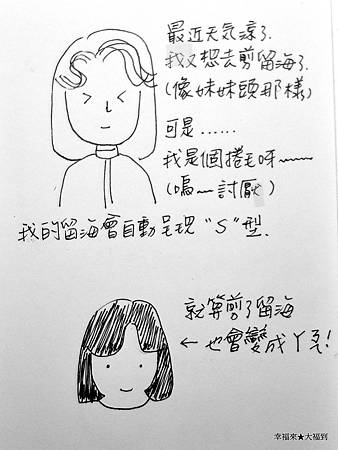 最近天氣涼了.
我又想去剪留海了.
(像妹妹頭那樣)
可是……
我是個捲毛呀~~~
(嗚~討厭)
我的留海會自動呈現“S”型.
就算剪了留海
←也會變成ㄚ秃!
幸福來★大福到